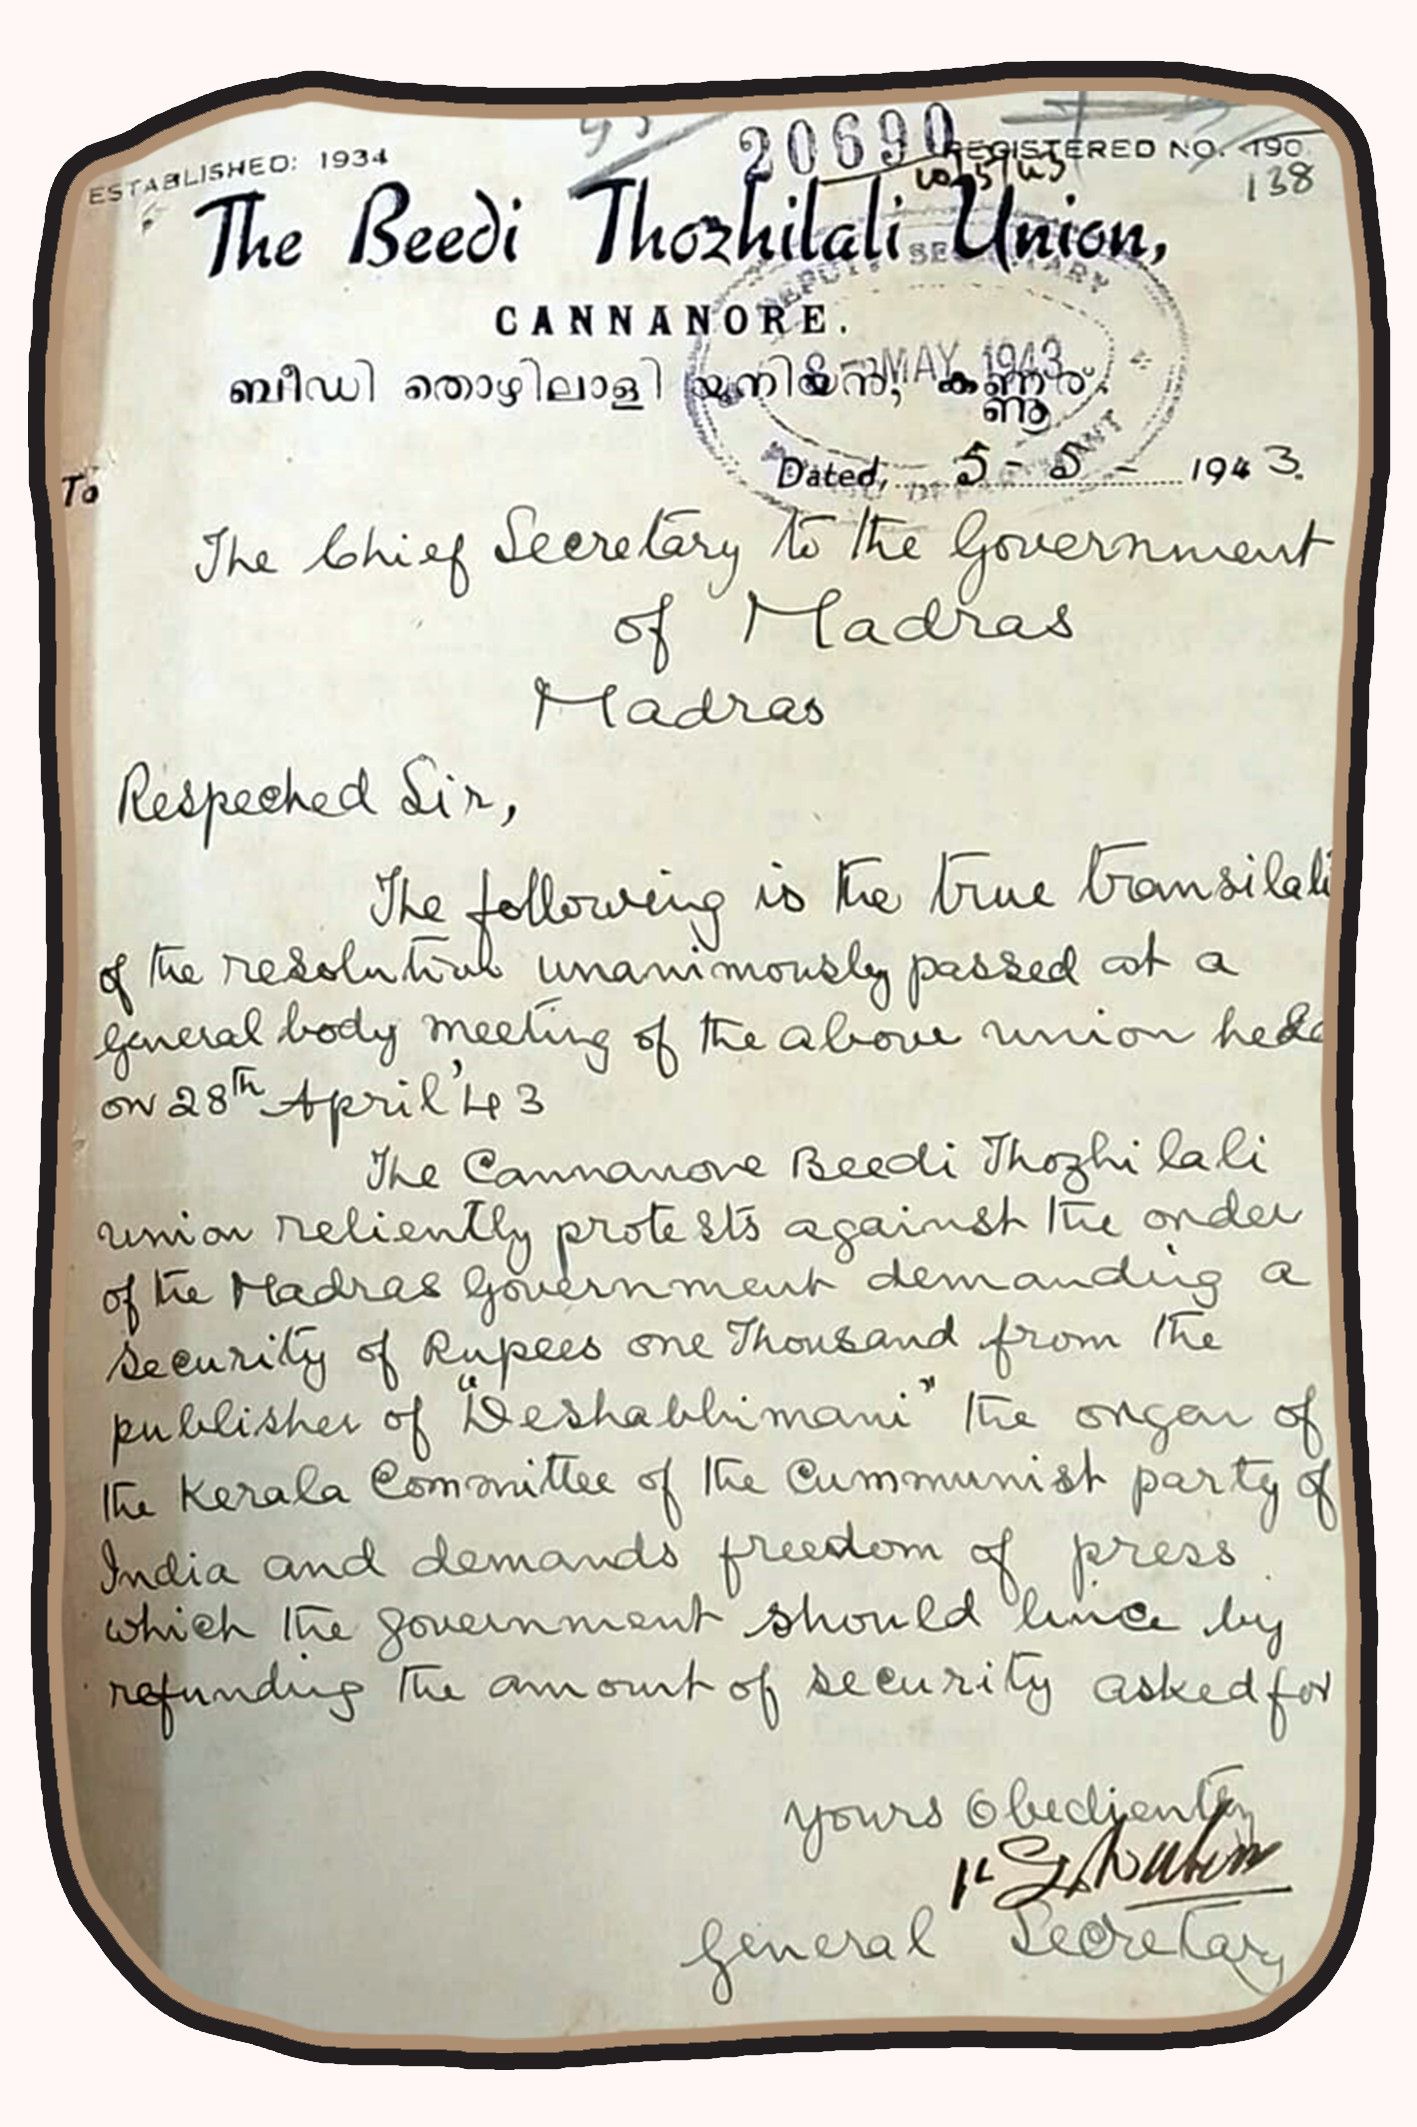 ESTABLISHED: 1934
20690
REGISTERED NO. 190
138
The Beedi Thozhilali Union,
CANNANORE.
ബീഡി തൊഴിലാളി യൂനിയൻ, കണ്ണൂർ.
DEPUTY SECRETARY
MAY 1943
Dated, 5 - 5 - 1943.
To
The Chief Secretary to the Government
of Madras
Madras
Respeched Sir,
The following is the true transilati
of the resolution unanimously passed at a
general body meeting of the above union
on 28th April '43
The Cannanore Beedi Thozhilali
union reliently protests against the order
of the Madras Government demanding a
security of Rupees one Thousand from the
publisher of "Deshabhimani" the organ of
the Kerala Committee of the Cummunist party of
India and demands freedom of press
which the government should by
refunding the amount of security asked for
yours Obediently
General Secretary